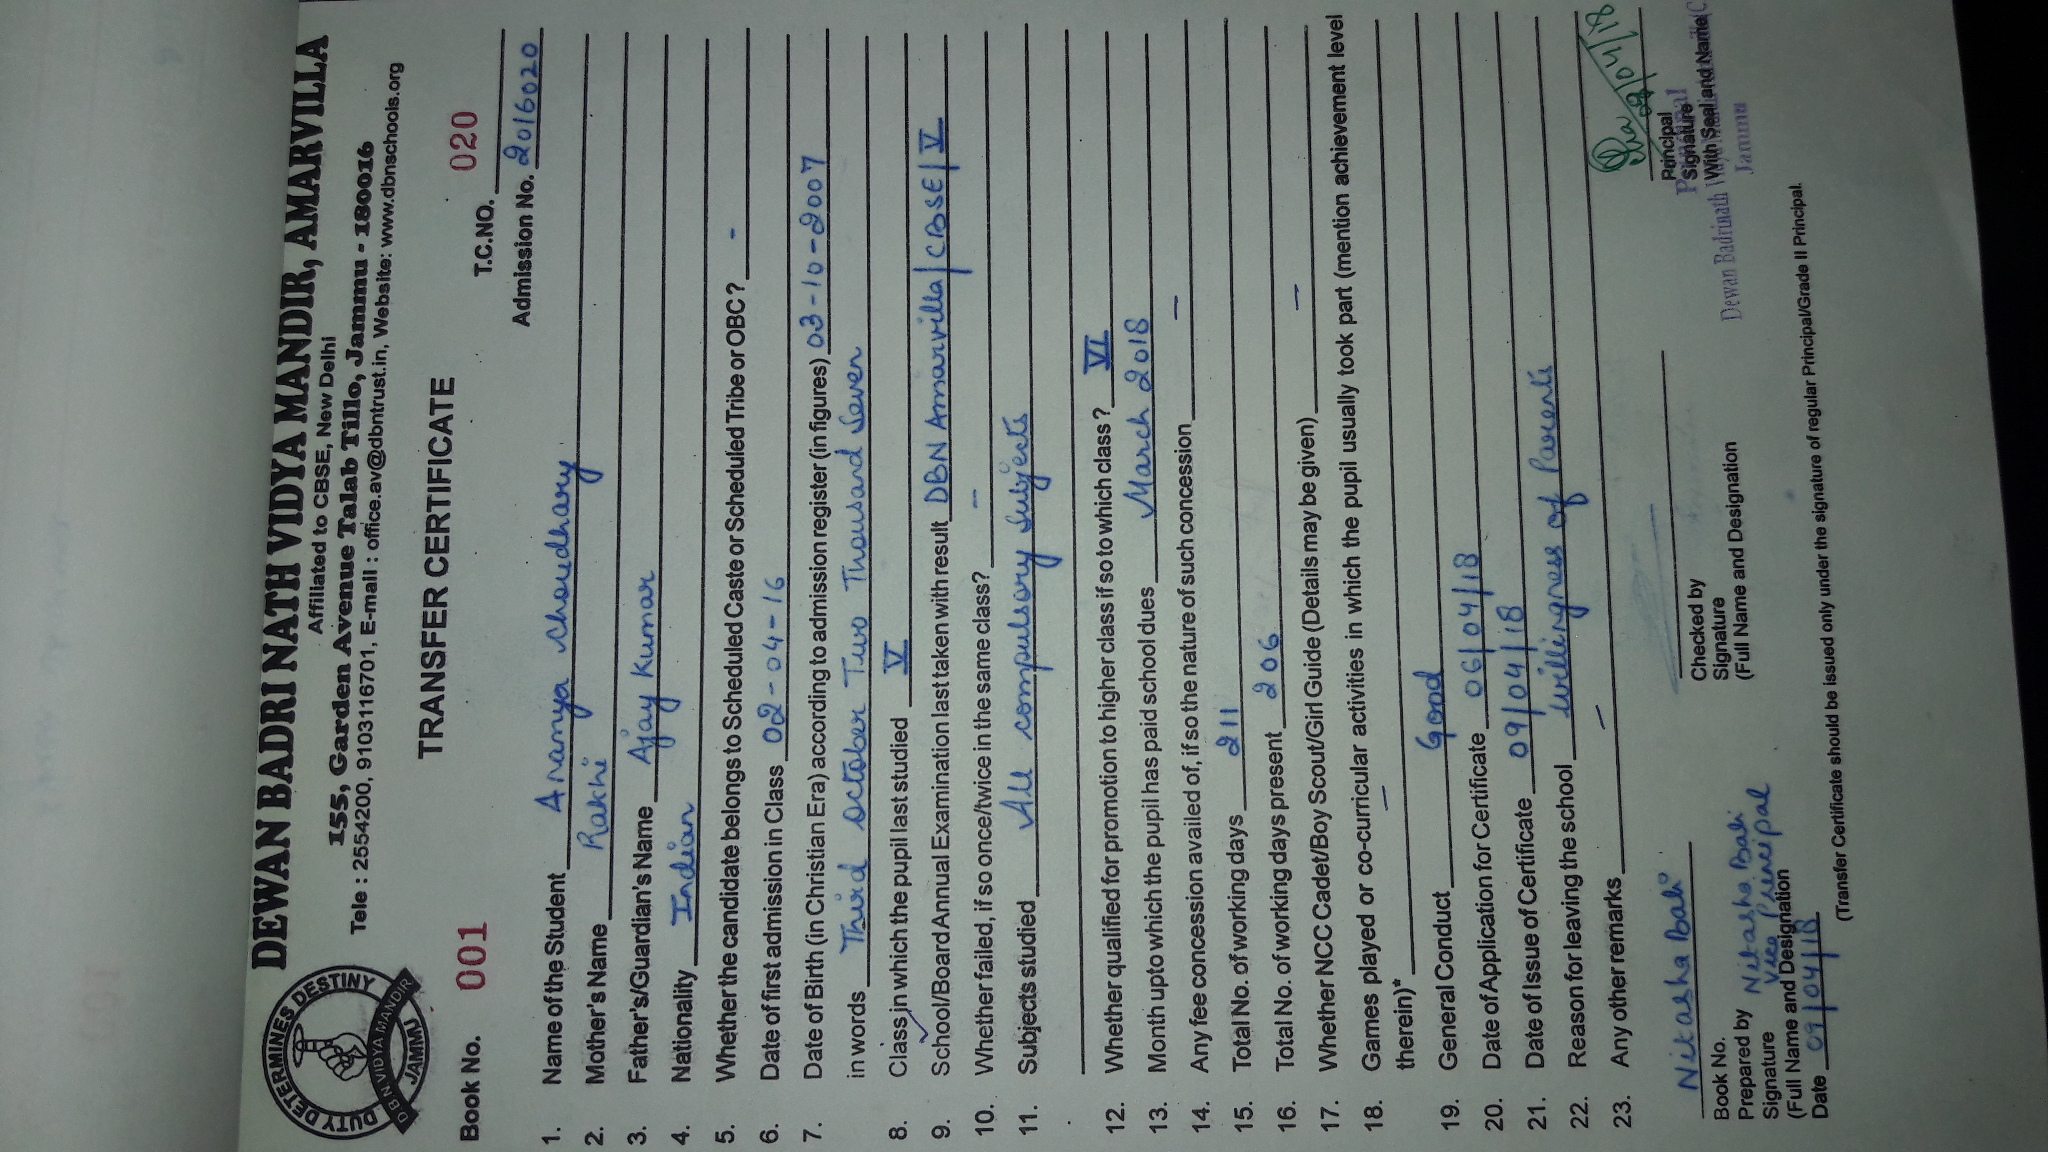 DUTY DETERMINES DESTINY
DBN VIDYA MANDIR
JAMMU
DEWAN BADRI NATH VIDYA MANDIR, AMARVILLA
Affiliated to CBSE, New Delhi
155, Garden Avenue Talab Tillo, Jammu - 180016
Tele : 2554200, 9103116701, E-mail : office.av@dbntrust.in, Website: www.dbnschools.org
TRANSFER CERTIFICATE
Book No. 001 T.C.NO. 020
Admission No. 2016020
1. Name of the Student Ananya Choudhary
2. Mother's Name Rakhi
3. Father's/Guardian's Name Ajay Kumar
4. Nationality Indian
5. Whether the candidate belongs to Scheduled Caste or Scheduled Tribe or OBC? -
6. Date of first admission in Class 02-04-16
7. Date of Birth (in Christian Era) according to admission register (in figures) 03-10-2007
in words Third October Two Thousand Seven
8. Class in which the pupil last studied V
9. School/Board Annual Examination last taken with result DBN Amarvilla/CBSE/V
10. Whether failed, if so once/twice in the same class? -
11. Subjects studied All compulsory Subjects
12. Whether qualified for promotion to higher class if so to which class? VI
13. Month upto which the pupil has paid school dues March 2018
14. Any fee concession availed of, if so the nature of such concession -
15. Total No. of working days 211
16. Total No. of working days present 206
17. Whether NCC Cadet/Boy Scout/Girl Guide (Details may be given) -
18. Games played or co-curricular activities in which the pupil usually took part (mention achievement level
therein)* -
19. General Conduct Good
20. Date of Application for Certificate 06/04/18
21. Date of Issue of Certificate 09/04/18
22. Reason for leaving the school Willingness of Parents
23. Any other remarks -
Nitasha Bali
09/04/18
Book No.
Prepared by Nitasha Bali
Signature Vice Principal
(Full Name and Designation
Date 09/04/18
Checked by
Signature
(Full Name and Designation
Principal
Signature
With Seal and Name
Principal
Dewan Badrinath
Jammu
(Transfer Certificate should be issued only under the signature of regular Principal/Grade II Principal.